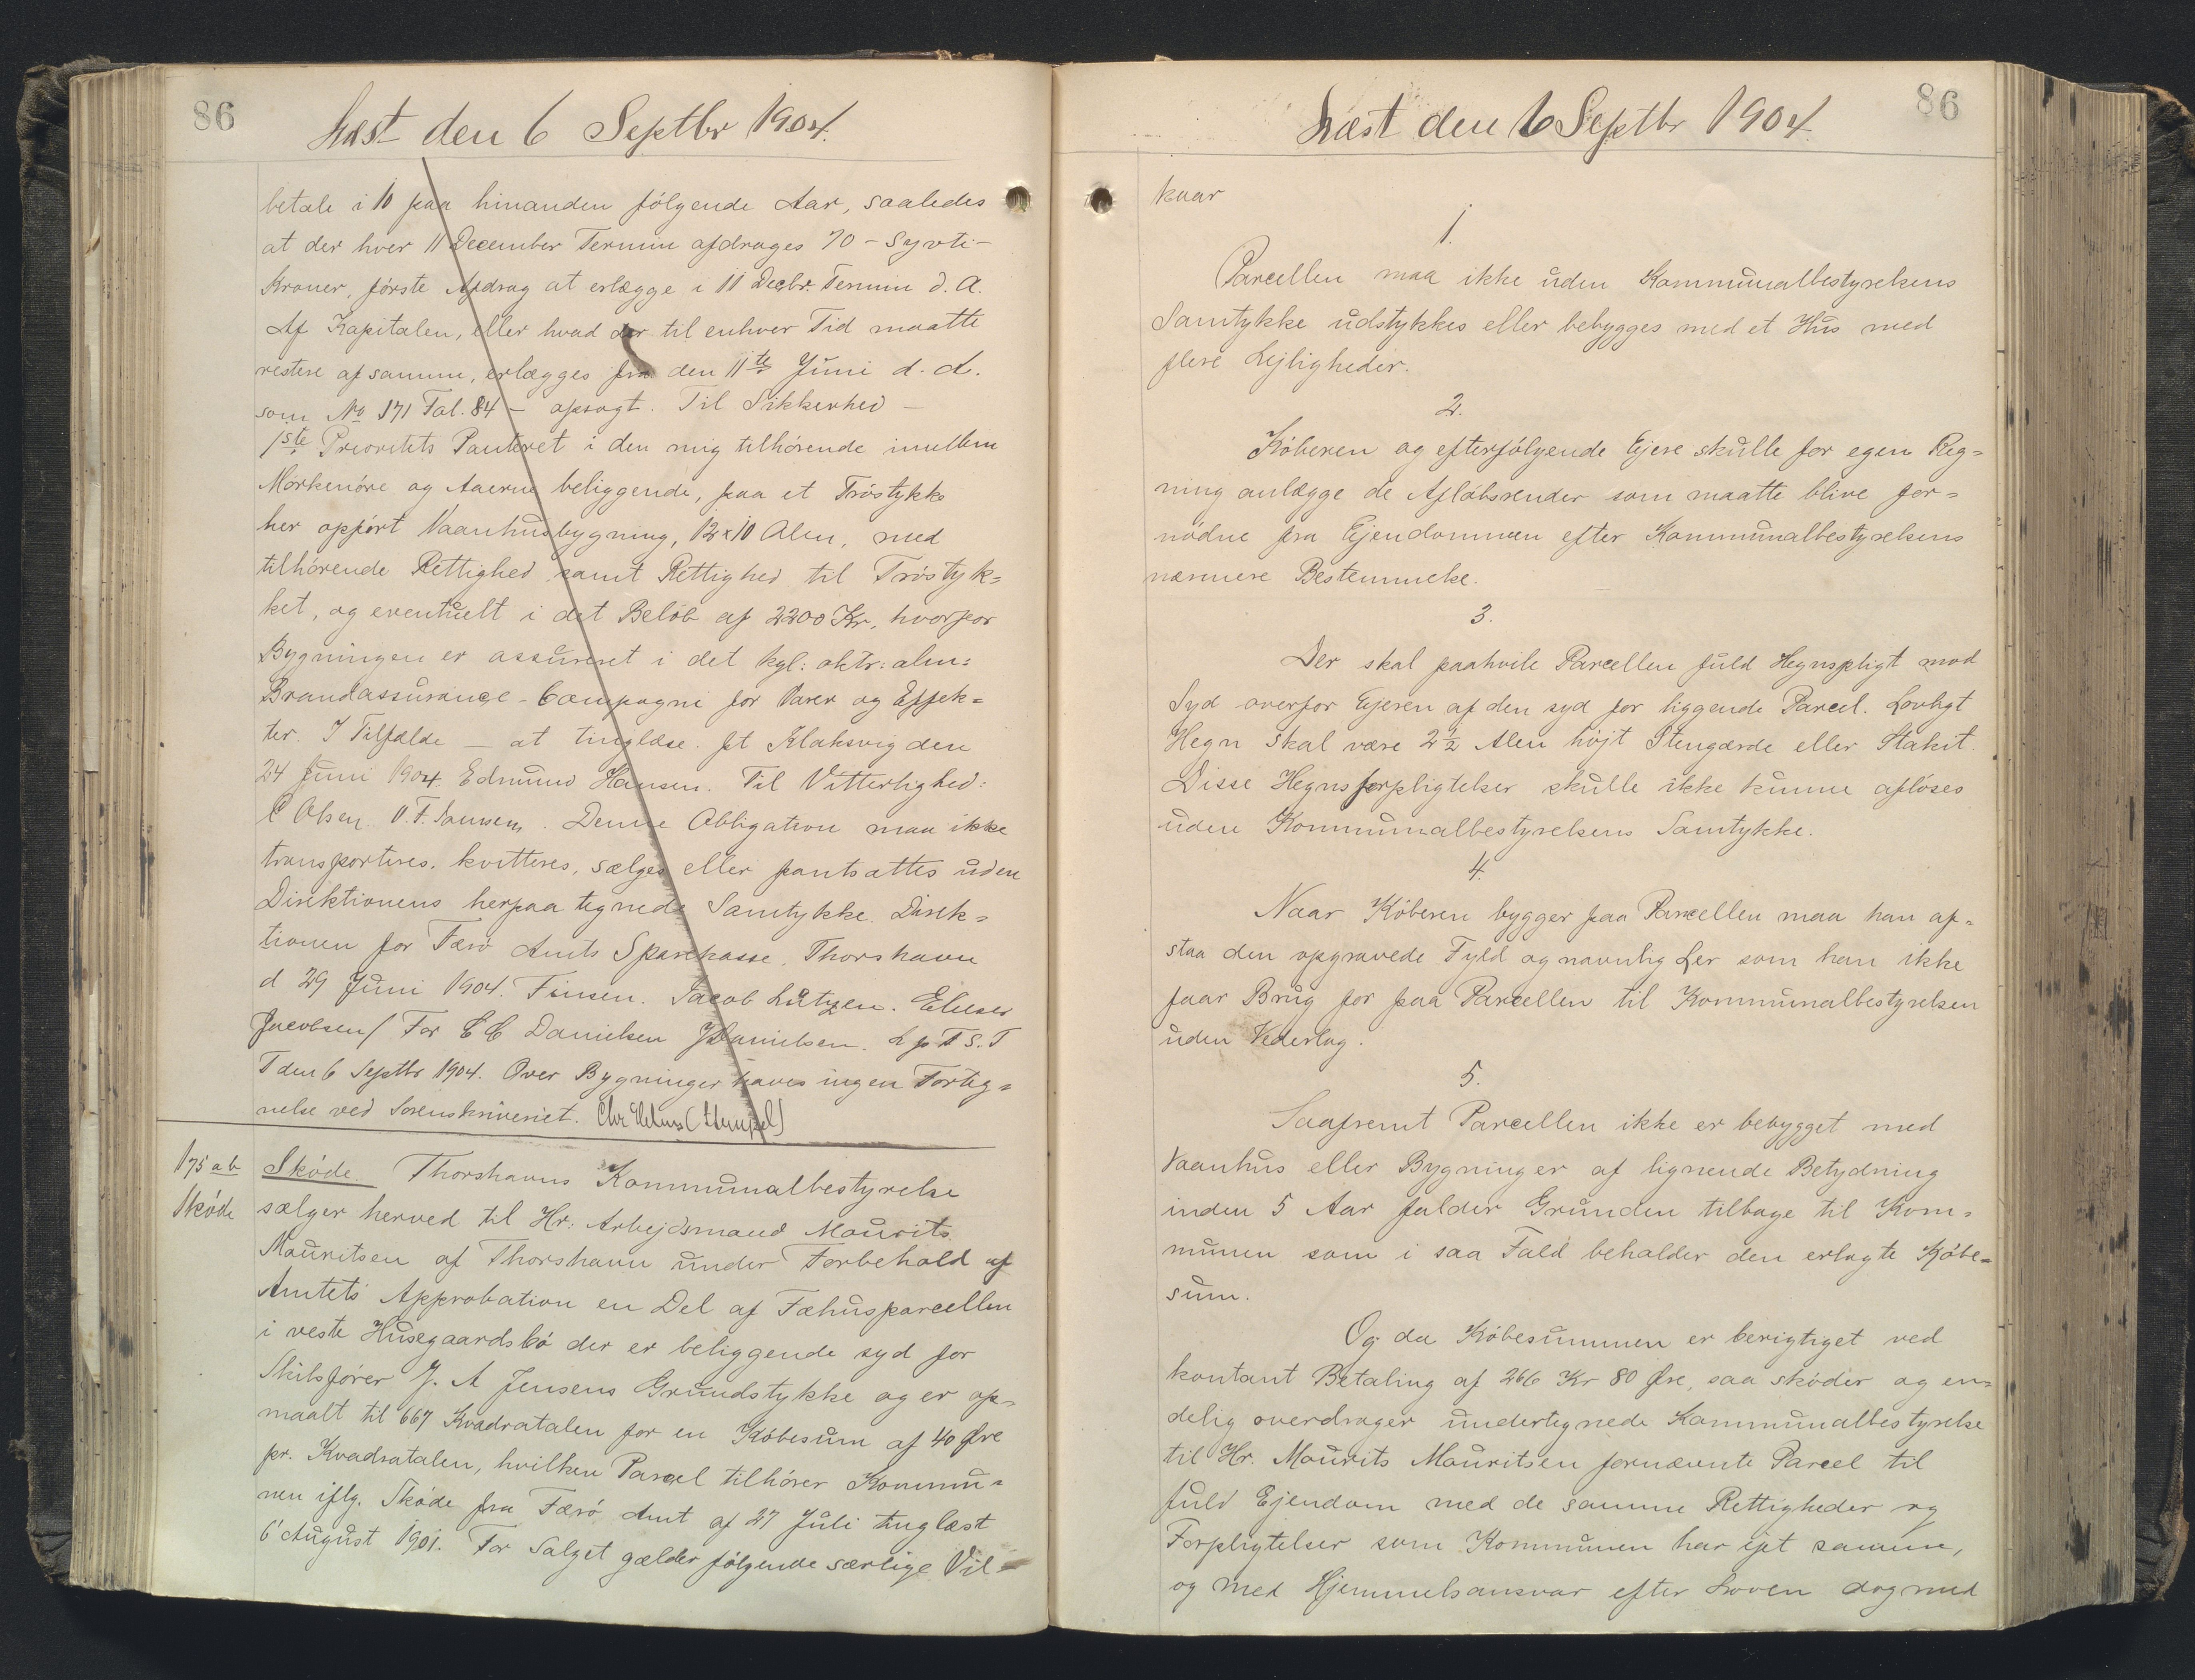 86
Læst den 6 Septbr 1904.
betale i 10 paa hinanden følgende Aar, saaledes
at der hver 11 December Termin afdrages 70 - Syvti-
Kroner, første Afdrag at erlægge i 11 Decbr. Termin d. A.
Af Kapitalen, eller hvad der til enhver Tid maatte
restere af samme, erlægges fra den 11te Juni d. A.
som No 171 Fol. 84 - opsagt. Til Sikkerhed -
1ste Prioritets Panteret i den mig tilhørende imellem
Mørkenøre og Aaerne beliggende, paa et Trøstykke
her opført Vaanhusbygning, 12 x 10 Alen, med
tilhørende Rettighed samt Rettighed til Trøstyk=
ket, og eventuelt i det Beløb af 2200 Kr, hvorfor
Bygningen er assureret i det kgl: oktr: alm:
Brandassurance-Compagni for Varer og Effek=
ter. I Tilfælde - at tinglæse. pt Klaksvig den
24 Juni 1904. Edmund Hansen. Til Vitterlighed:
C Olsen. O. F. Joensen. Denne Obligation maa ikke
transporteres, kvitteres, sælges eller pantsættes uden
Direktionens herpaa tegnede Samtykke. Direk=
tionen for Færø Amts Sparekasse. Thorshavn
d 29 Juni 1904. Finsen. Jacob Lützen. Elieser
Jacobsen / For C C Danielsen J Danielsen. L p T S. T
T den 6 Septbr 1904. Over Bygninger haves ingen Forteg=
nelse ved Sorenskriveriet. (Stempel)
175 ab
Skøde
Skøde. Thorshavns Kommunalbestyrelse
sælger herved til Hr. Arbejdsmand Mourits
Mouritsen af Thorshavn under Forbehold af
Amtets Approbation en Del af Fæhusparcellen
i veste Husegaardsbø der er beliggende syd for
Skibsfører J. A Jensens Grundstykke og er op=
maalt til 667 Kvadratalen for en Købesum af 40 Øre
pr. Kvadratalen, hvilken Parcel tilhører Kommu=
nen iflg. Skøde fra Færø Amt af 27 Juli tinglæst
6 August 1901. For Salget gælder følgende særlige Vil=
86
Læst den 6 Septbr 1904
kaar
1.
Parcellen maa ikke uden Kommunalbestyrelsens
Samtykke udstykkes eller bebygges med et Hus med
flere Lejligheder.
2.
Køberen og efterfølgende Ejere skulle for egen Reg=
ning anlægge de Afløbsrender som maatte blive for=
nødne fra Ejendommen efter Kommunalbestyrelsens
nærmere Bestemmelse.
3.
Der skal paahvile Parcellen fuld Hegnspligt mod
Syd overfor Ejeren af den syd for liggende Parcel. Lovligt
Hegn skal være 2½ Alen højt Stengærde eller Stakit.
Disse Hegnsforpligtelser skulle ikke kunne afløses
uden Kommunalbestyrelsens Samtykke.
4.
Naar Køberen bygger paa Parcellen maa han af=
staa den opgravede Fyld og navnlig Ler som han ikke
faar Brug for paa Parcellen til Kommunalbestyrelsen
uden Vederlag.
5.
Saafremt Parcellen ikke er bebygget med
Vaanhus eller Bygninger af lignende Betydning
inden 5 Aar falder Grunden tilbage til Kom=
munen som i saa Fald beholder den erlagte Købe=
sum.
Og da Købesummen er berigtiget ved
kontant Betaling af 266 Kr 80 Øre, saa skøder og en=
delig overdrager undertegnede Kommunalbestyrelse
til Hr. Mourits Mouritsen fornævnte Parcel til
fuld Ejendom med de samme Rettigheder og
Forpligtelser som Kommunen har ejet samme,
og med Hjemmelsansvar efter Loven dog med